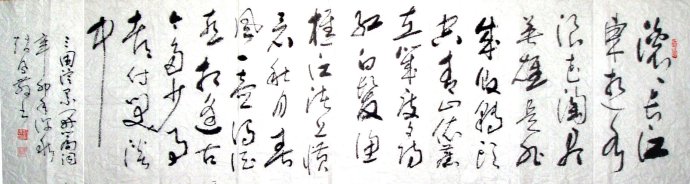 滚々长江
东逝水
浪花淘尽
英雄是非
成败转头
空青山依旧
在几度夕阳
红白髮渔
樵江渚上惯
看秋月春
风一壶浊酒
喜相逢古
今多少事
都付笑谈
中
三国演义开篇词
辛卯年深秋
书